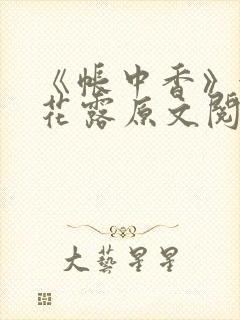 《帐中香》
花露原文阅
大艺星星